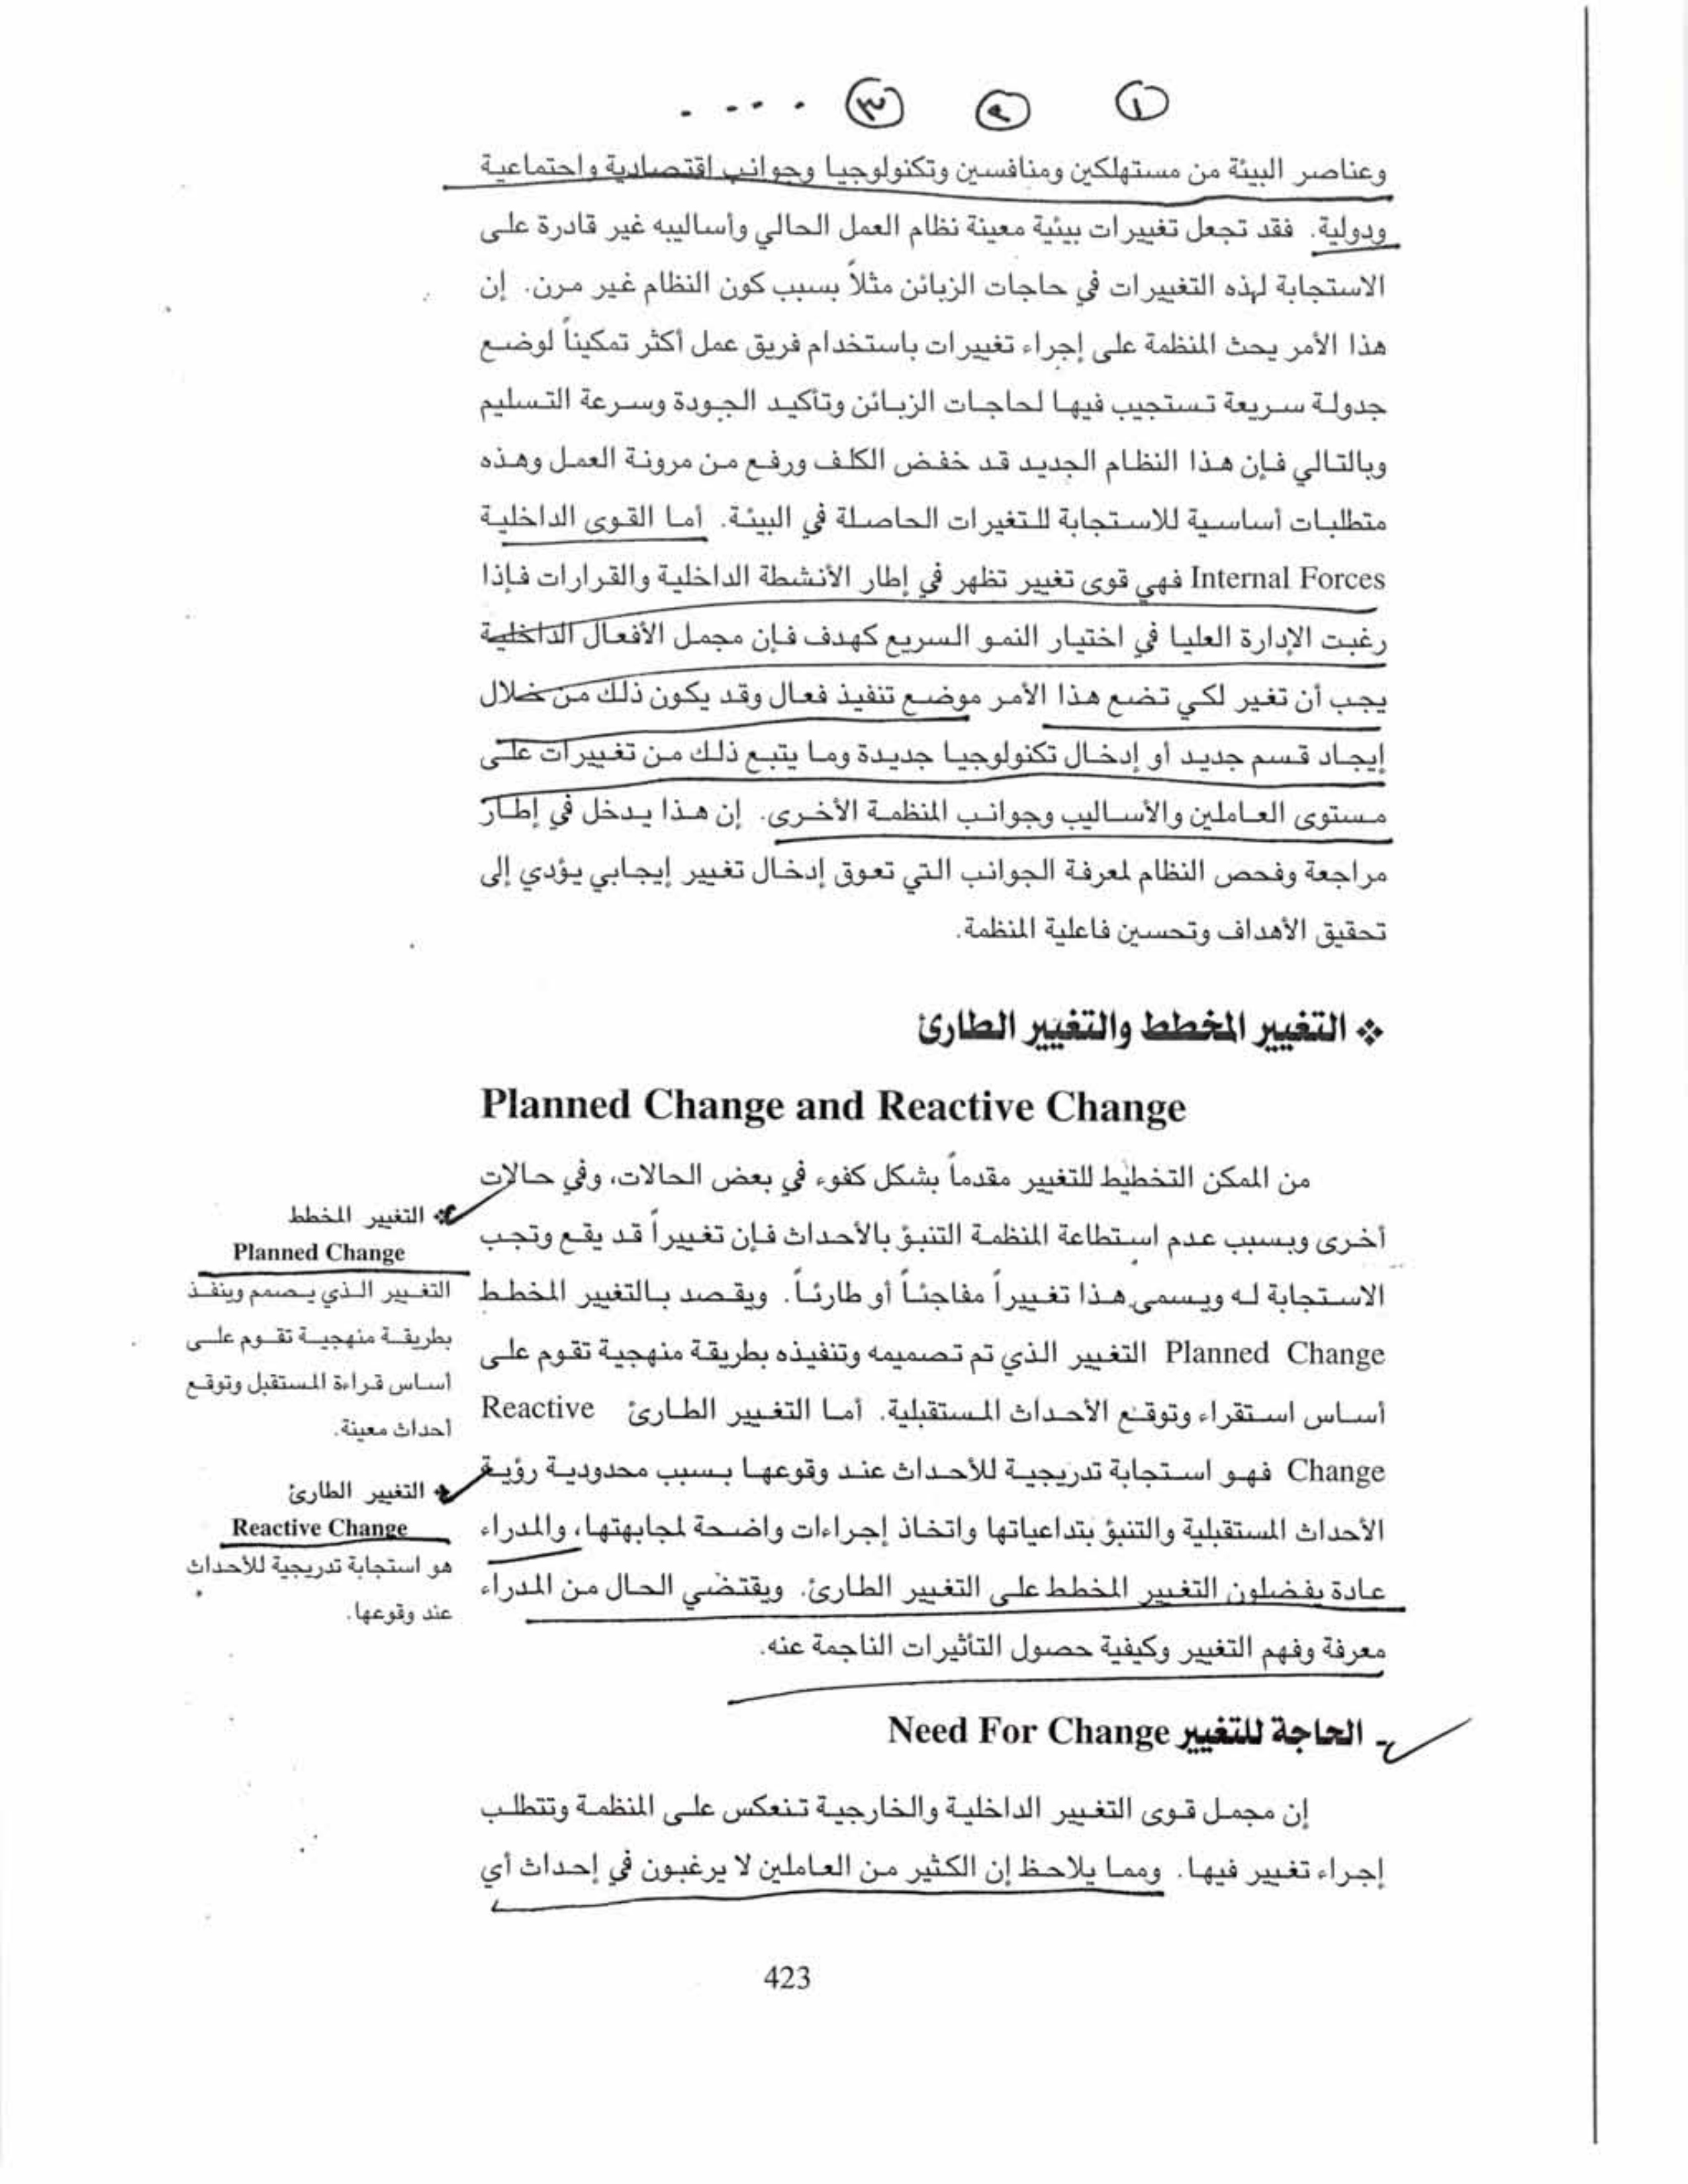 ١ ٢ ٣ . . . .
وعناصر البيئة من مستهلكين ومنافسين وتكنولوجيا وجوانب اقتصادية واجتماعية
ودولية. فقد تجعل تغييرات بيئية معينة نظام العمل الحالي وأساليبه غير قادرة على
الاستجابة لهذه التغييرات في حاجات الزبائن مثلاً بسبب كون النظام غير مرن. إن
هذا الأمر يحث المنظمة على إجراء تغييرات باستخدام فريق عمل أكثر تمكيناً لوضع
جدولة سريعة تستجيب فيها لحاجات الزبائن وتأكيد الجودة وسرعة التسليم
وبالتالي فإن هذا النظام الجديد قد خفض الكلف ورفع من مرونة العمل وهذه
متطلبات أساسية للاستجابة للتغيرات الحاصلة في البيئة. أما القوى الداخلية
Internal Forces فهي قوى تغيير تظهر في إطار الأنشطة الداخلية والقرارات فإذا
رغبت الإدارة العليا في اختيار النمو السريع كهدف فإن مجمل الأفعال الداخلية
يجب أن تغير لكي تضع هذا الأمر موضع تنفيذ فعال وقد يكون ذلك من خلال
إيجاد قسم جديد أو إدخال تكنولوجيا جديدة وما يتبع ذلك من تغييرات على
مستوى العاملين والأساليب وجوانب المنظمة الأخرى. إن هذا يدخل في إطار
مراجعة وفحص النظام لمعرفة الجوانب التي تعوق إدخال تغيير إيجابي يؤدي إلى
تحقيق الأهداف وتحسين فاعلية المنظمة.
❖ التغيير المخطط والتغيير الطارئ
Planned Change and Reactive Change
من الممكن التخطيط للتغيير مقدماً بشكل كفوء في بعض الحالات، وفي حالات
أخرى وبسبب عدم استطاعة المنظمة التنبؤ بالأحداث فإن تغييراً قد يقع وتجب
الاستجابة له ويسمى هذا تغييراً مفاجئاً أو طارئاً. ويقصد بالتغيير المخطط
Planned Change التغيير الذي تم تصميمه وتنفيذه بطريقة منهجية تقوم على
أساس استقراء وتوقع الأحداث المستقبلية. أما التغيير الطارئ Reactive
Change فهو استجابة تدريجية للأحداث عند وقوعها بسبب محدودية رؤية
الأحداث المستقبلية والتنبؤ بتداعياتها واتخاذ إجراءات واضحة لمجابهتها، والمدراء
عادة يفضلون التغيير المخطط على التغيير الطارئ. ويقتضي الحال من المدراء
معرفة وفهم التغيير وكيفية حصول التأثيرات الناجمة عنه.
❖ التغيير المخطط
Planned Change
التغيير الذي يصمم وينفذ
بطريقة منهجية تقوم على
أساس قراءة المستقبل وتوقع
أحداث معينة.
❖ التغيير الطارئ
Reactive Change
هو استجابة تدريجية للأحداث
عند وقوعها.
- الحاجة للتغيير Need For Change
إن مجمل قوى التغيير الداخلية والخارجية تنعكس على المنظمة وتتطلب
إجراء تغيير فيها. ومما يلاحظ إن الكثير من العاملين لا يرغبون في إحداث أي
423